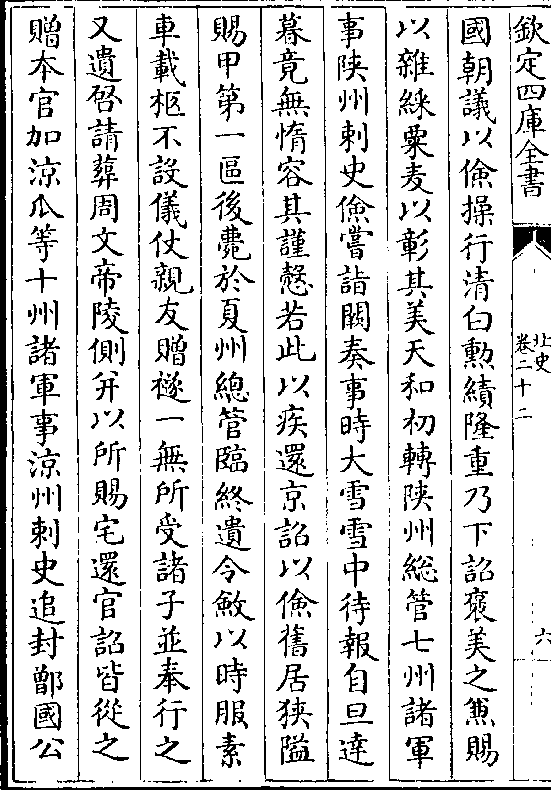 欽定四庫全書
北史
卷二十二
六
國朝議以儉操行清白勲績隆重乃下詔褒美之兼賜
以雜綵粟麦以彰其美天和初轉陜州総管七州諸軍
事陜州刺史儉嘗詣闕奏事時大雪雪中待報自旦達
暮竟無惰容其謹慤若此以疾還京詔以儉舊居狹隘
賜甲第一區後薨於夏州總管臨終遺令斂以時服素
車載柩不設儀仗親友贈襚一無所受諸子並奉行之
又遺啓請葬周文帝陵側并以所賜宅還官詔皆從之
贈本官加涼瓜等十州諸軍事涼州刺史追封鄫國公